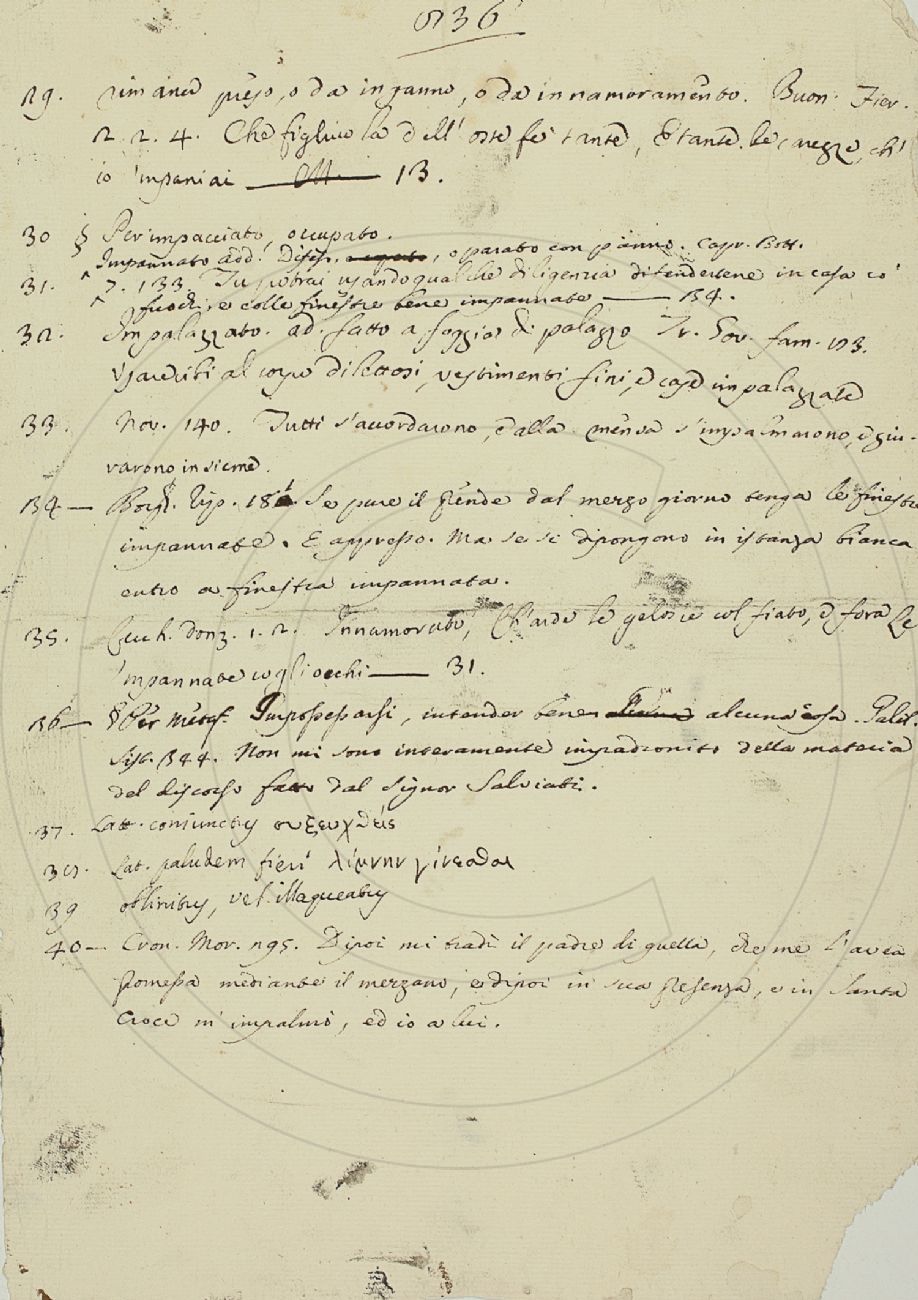 836
29. rimaner preso, o da inganno, o da innamoramento. Buon. Fier.
2. 2. 4. Che figliuola dell' oste fe' tante, E tante le carezze, ch'
io 'mpaniai 13.
30 § Per impacciato, occupato.
Impannato add. Difeso, o parato con panno. Capr. Bott.
31. 7. 133. Tu potrai usando qualche diligenzia difendertene in casa co'
fuochi, e colle finestre bene impannate — 34.
32. Impalazzato. ad. fatto a foggia di palazzo Tr. Gov. fam. 23.
Usare cibi al corpo dilettosi, vestimenti fini, e case impalazzate
33. Nov. 140. Tutti s'accordarono, e alla mensa s'impalmarono, e giu-
rarono insieme.
34 — Borgh. Rip. 18 Se pure il prende dal mezzo giorno tenga le finestre
impannate. E appresso. Ma se si dipongono in istanza bianca
entro a finestra impannata.
35. Cecch. Donz. 1. 2. Innamorato, Ch'arde le gelosie col fiato, e fora le
'mpannate cogli occhi — 31.
36 — § Per metaf. Impossessarsi, intender bene alcuna cosa. Galil.
Sist. 344. Non mi sono interamente impadronito della materia
del discorso fatto dal Signor Salviati.
37. Lat. coniunctus συζευχθείς
38. Lat. paludem fieri λίμνην γίνεσθαι
39 oblinitus, vel illaqueatus
40 — Cron. Mor. 295. Dipoi mi tradì il padre di quella, che me l'avea
promessa mediante il mezzano, e dipoi in sua presenza, e in Santa
Croce m' impalmò, ed io a lui.